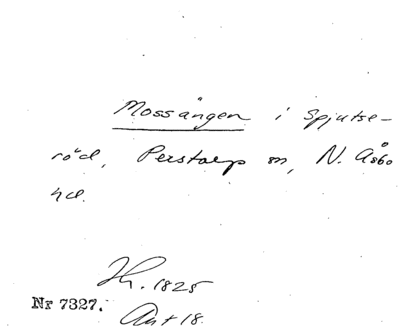 Mossängen i Spjutse-
röd, Perstorp sn, N. Åsbo
hd.
1825
Nr 7327.
Akt 18.